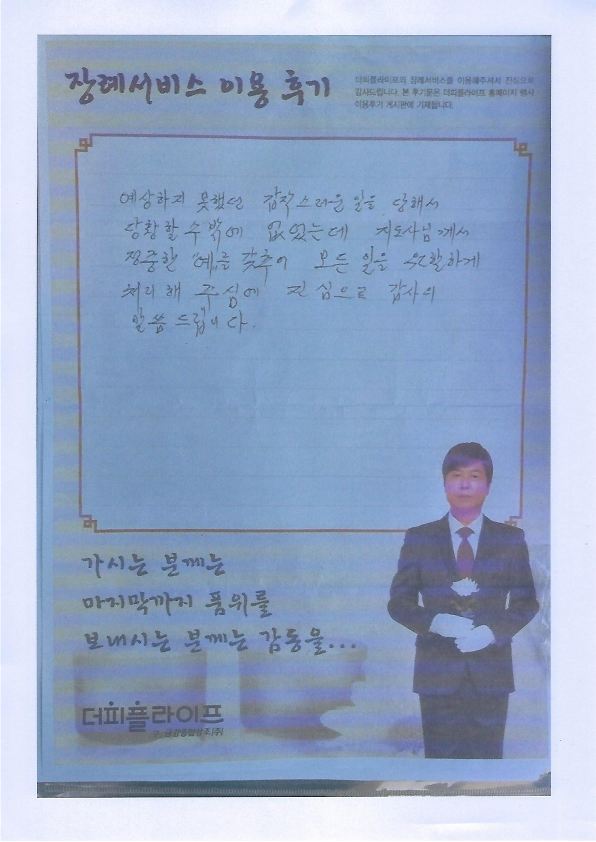 장례서비스 이용 후기
더피플라이프의 장례서비스를 이용해주셔서 진심으로
감사드립니다. 본 후기문은 더피플라이프 홈페이지 행사
이용후기 게시판에 기재됩니다.
예상하지 못했던 갑작스러운 일을 당해서
당황할 수 밖에 없었는데 지도사님께서
정중한 "예"를 갖추어 모든 일을 원활하게
처리해 주심에 진심으로 감사의
말씀 드립니다.
가시는 분께는
마지막까지 품위를
보내시는 분께는 감동을...
더피플라이프
구, 금강종합상조(주)